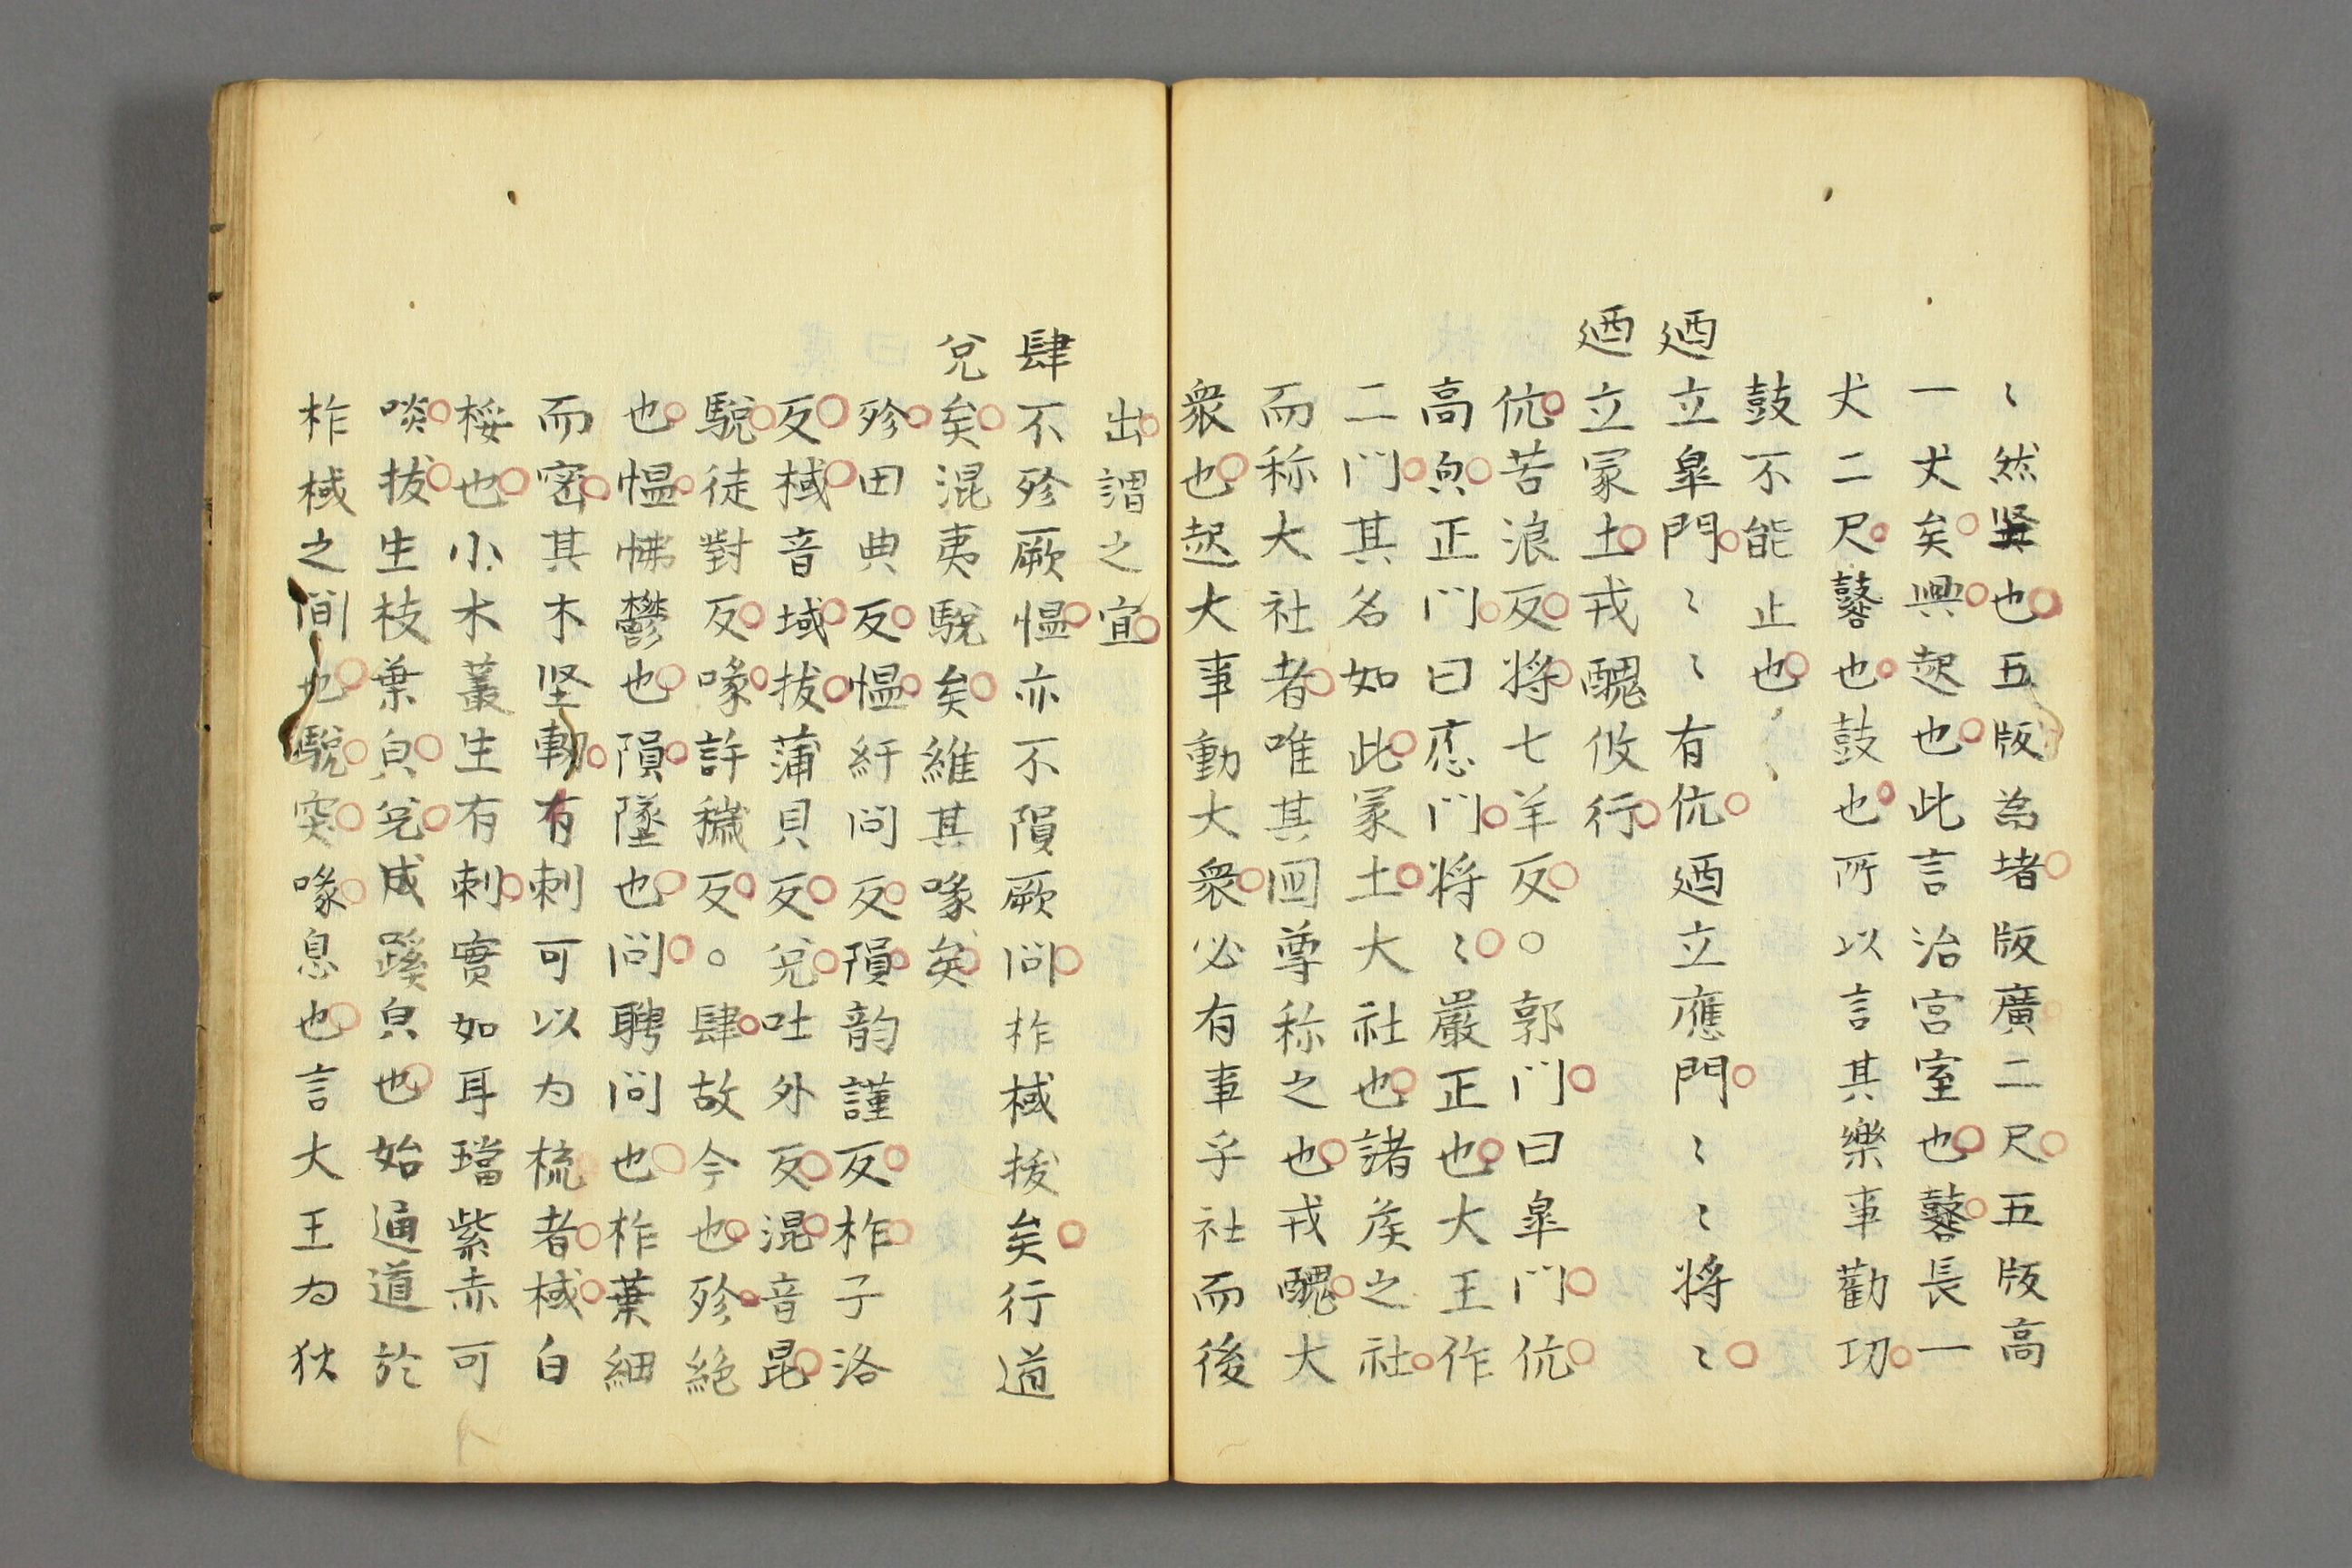 〻然堅也五版為堵版廣二尺五版高
一丈矣興起也此言治宮室也鼛長一
丈二尺鼛也鼓也所以言其樂事勸功
鼓不能止也
廼立皐門〻〻有伉廼立應門〻〻将〻
廼立冢土戎醜攸行
伉苦浪反将七羊反○郭门曰皐门伉
高皃正门曰应门将〻嚴正也大王作
二门其名如此冢土大社也諸矦之社
而称大社者唯其囬尊称之也戎醜大
衆也起大事動大衆必有事乎社而後
出謂之宜
肆不殄厥愠亦不隕厥问柞棫拔矣行道
兌矣混夷駾矣維其喙矣
殄田典反愠紆问反隕韵謹反柞子洛
反棫音域拔蒲貝反兌吐外反混音昆
駾徒對反喙許穢反○肆故今也殄絶
也愠怫鬱也隕墜也问聘问也柞葉細
而密其木坚靭有刺可以为梳者棫白
桵也小木叢生有刺實如耳璫紫赤可
啖拔生枝葉皃兌成蹊皃也始通道於
柞棫之间也駾突喙息也言大王为狄